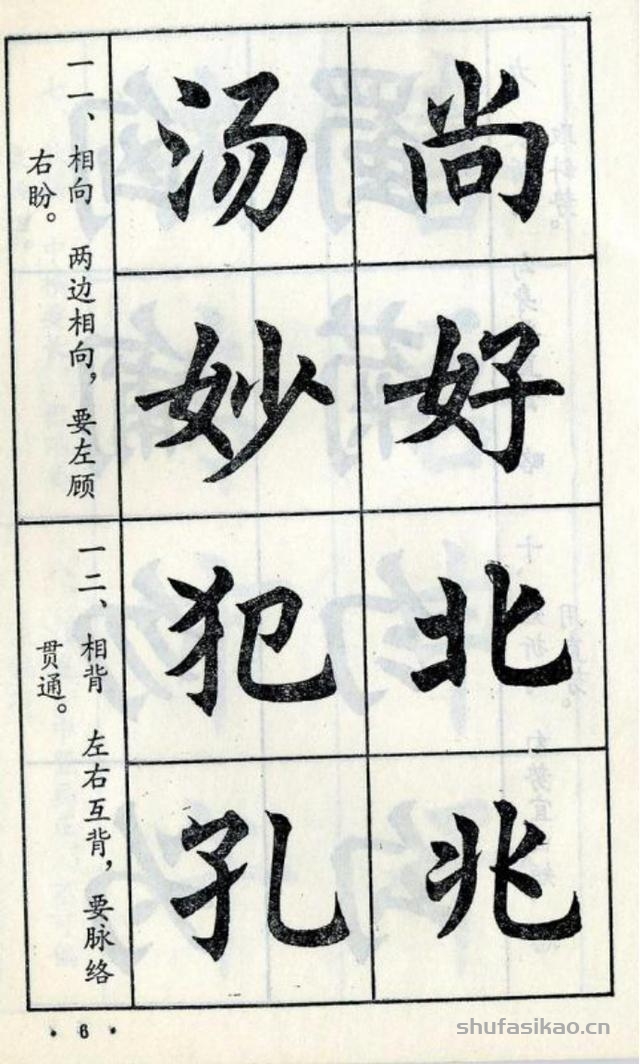 尚好北兆
汤妙犯孔
一一、相向 两边相向，要左顾
右盼。
一二、相背 左右互背，要脉络
贯通。
· 6 ·
shufasikao.cn